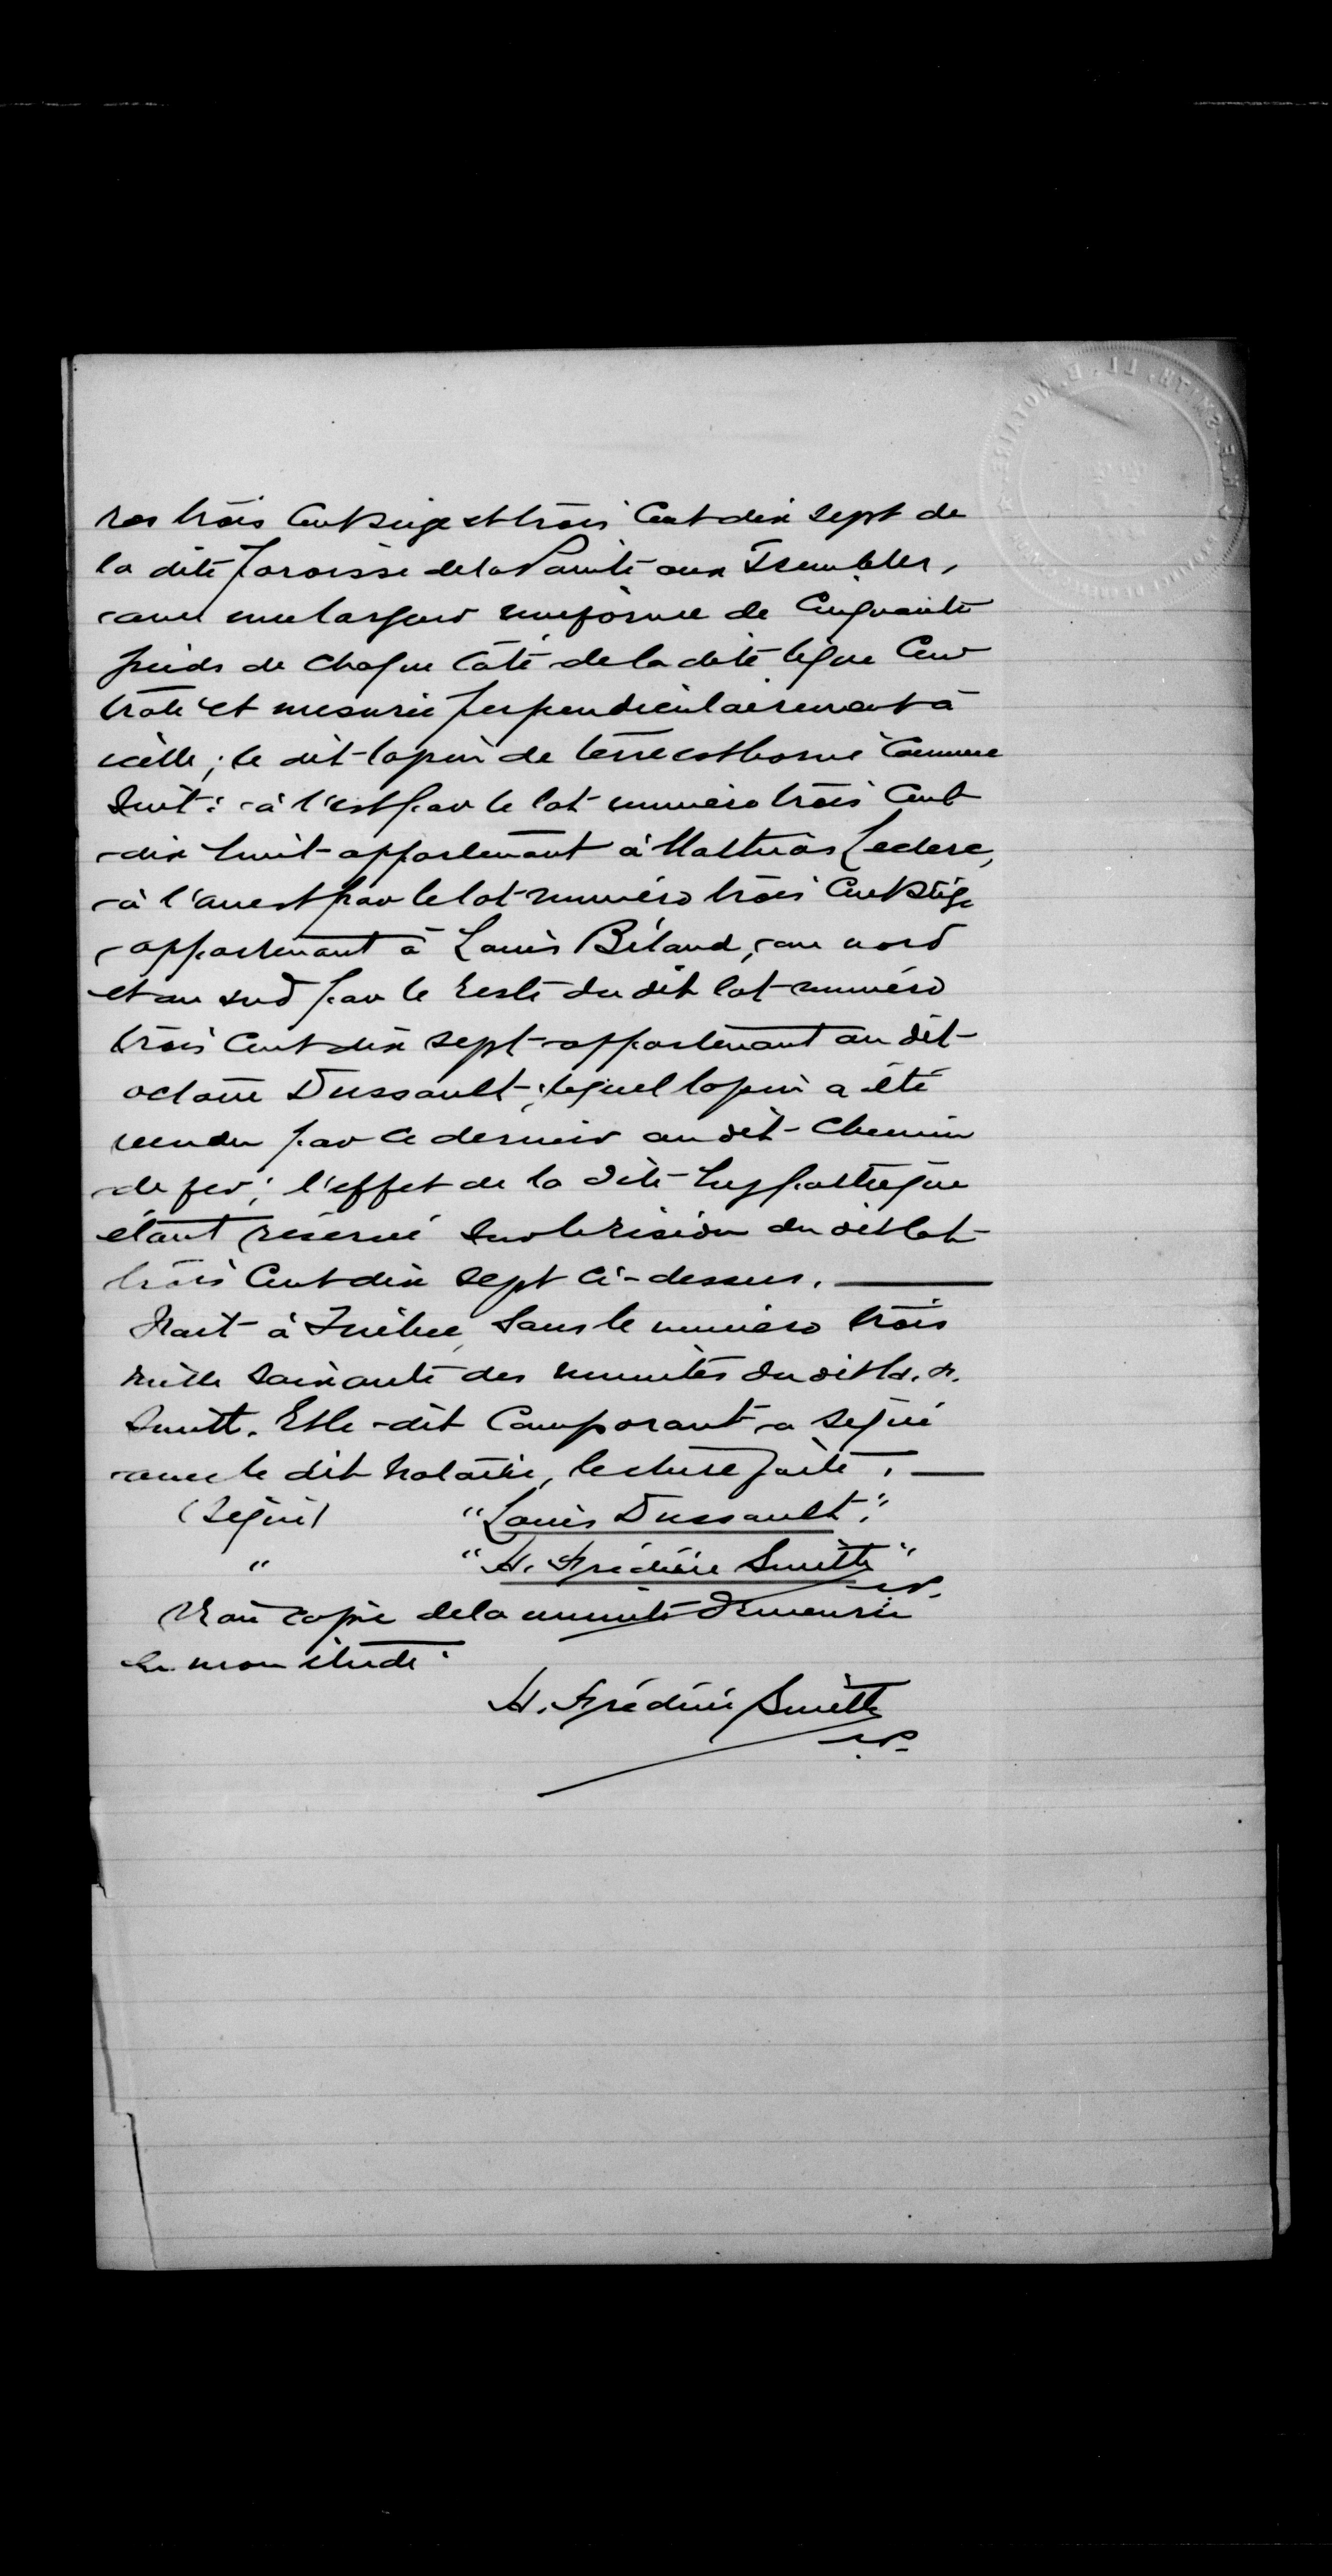 ros trois cent seize et trois cent dix sept de
la dite paroisse de la Pointe aux Trembles,
avec une largeur uniforme de cinquante
pieds de chaque côté de la dite ligne cen
trale et mesurée perpendiculairement à
icelle ; le dit lopin de terre est borné comme
suit : à l'est par le lot numéro trois cent
dix huit appartenant à Mathias Leclerc,
à l'ouest par le lot numéro trois cent seize
appartenant à Louis Béland, au nord
et au sud par le reste du dit lot numéro
trois cent dix sept appartenant au dit
octave Dussault ; lequel lopin a été
vendu par ce dernier au dit chemin
de fer ; l'effet de la dite hypothèque
étant réservé sur le résidu du dit lot
trois cent dix sept ci-dessus.
Fait à Québec, sous le numéro trois
mille soixante des minutes du dit H. F.
Smith. Et le dit comparant a signé
avec le dit notaire, lecture faite.
(Signé) "Louis Dussault."
" "H. Frédéric Smith" N.P.
Vraie copie de la minute demeurée
en mon étude.
H. Frédéric Smith
N.P.
SMITH, LL. B. NOTAIRE